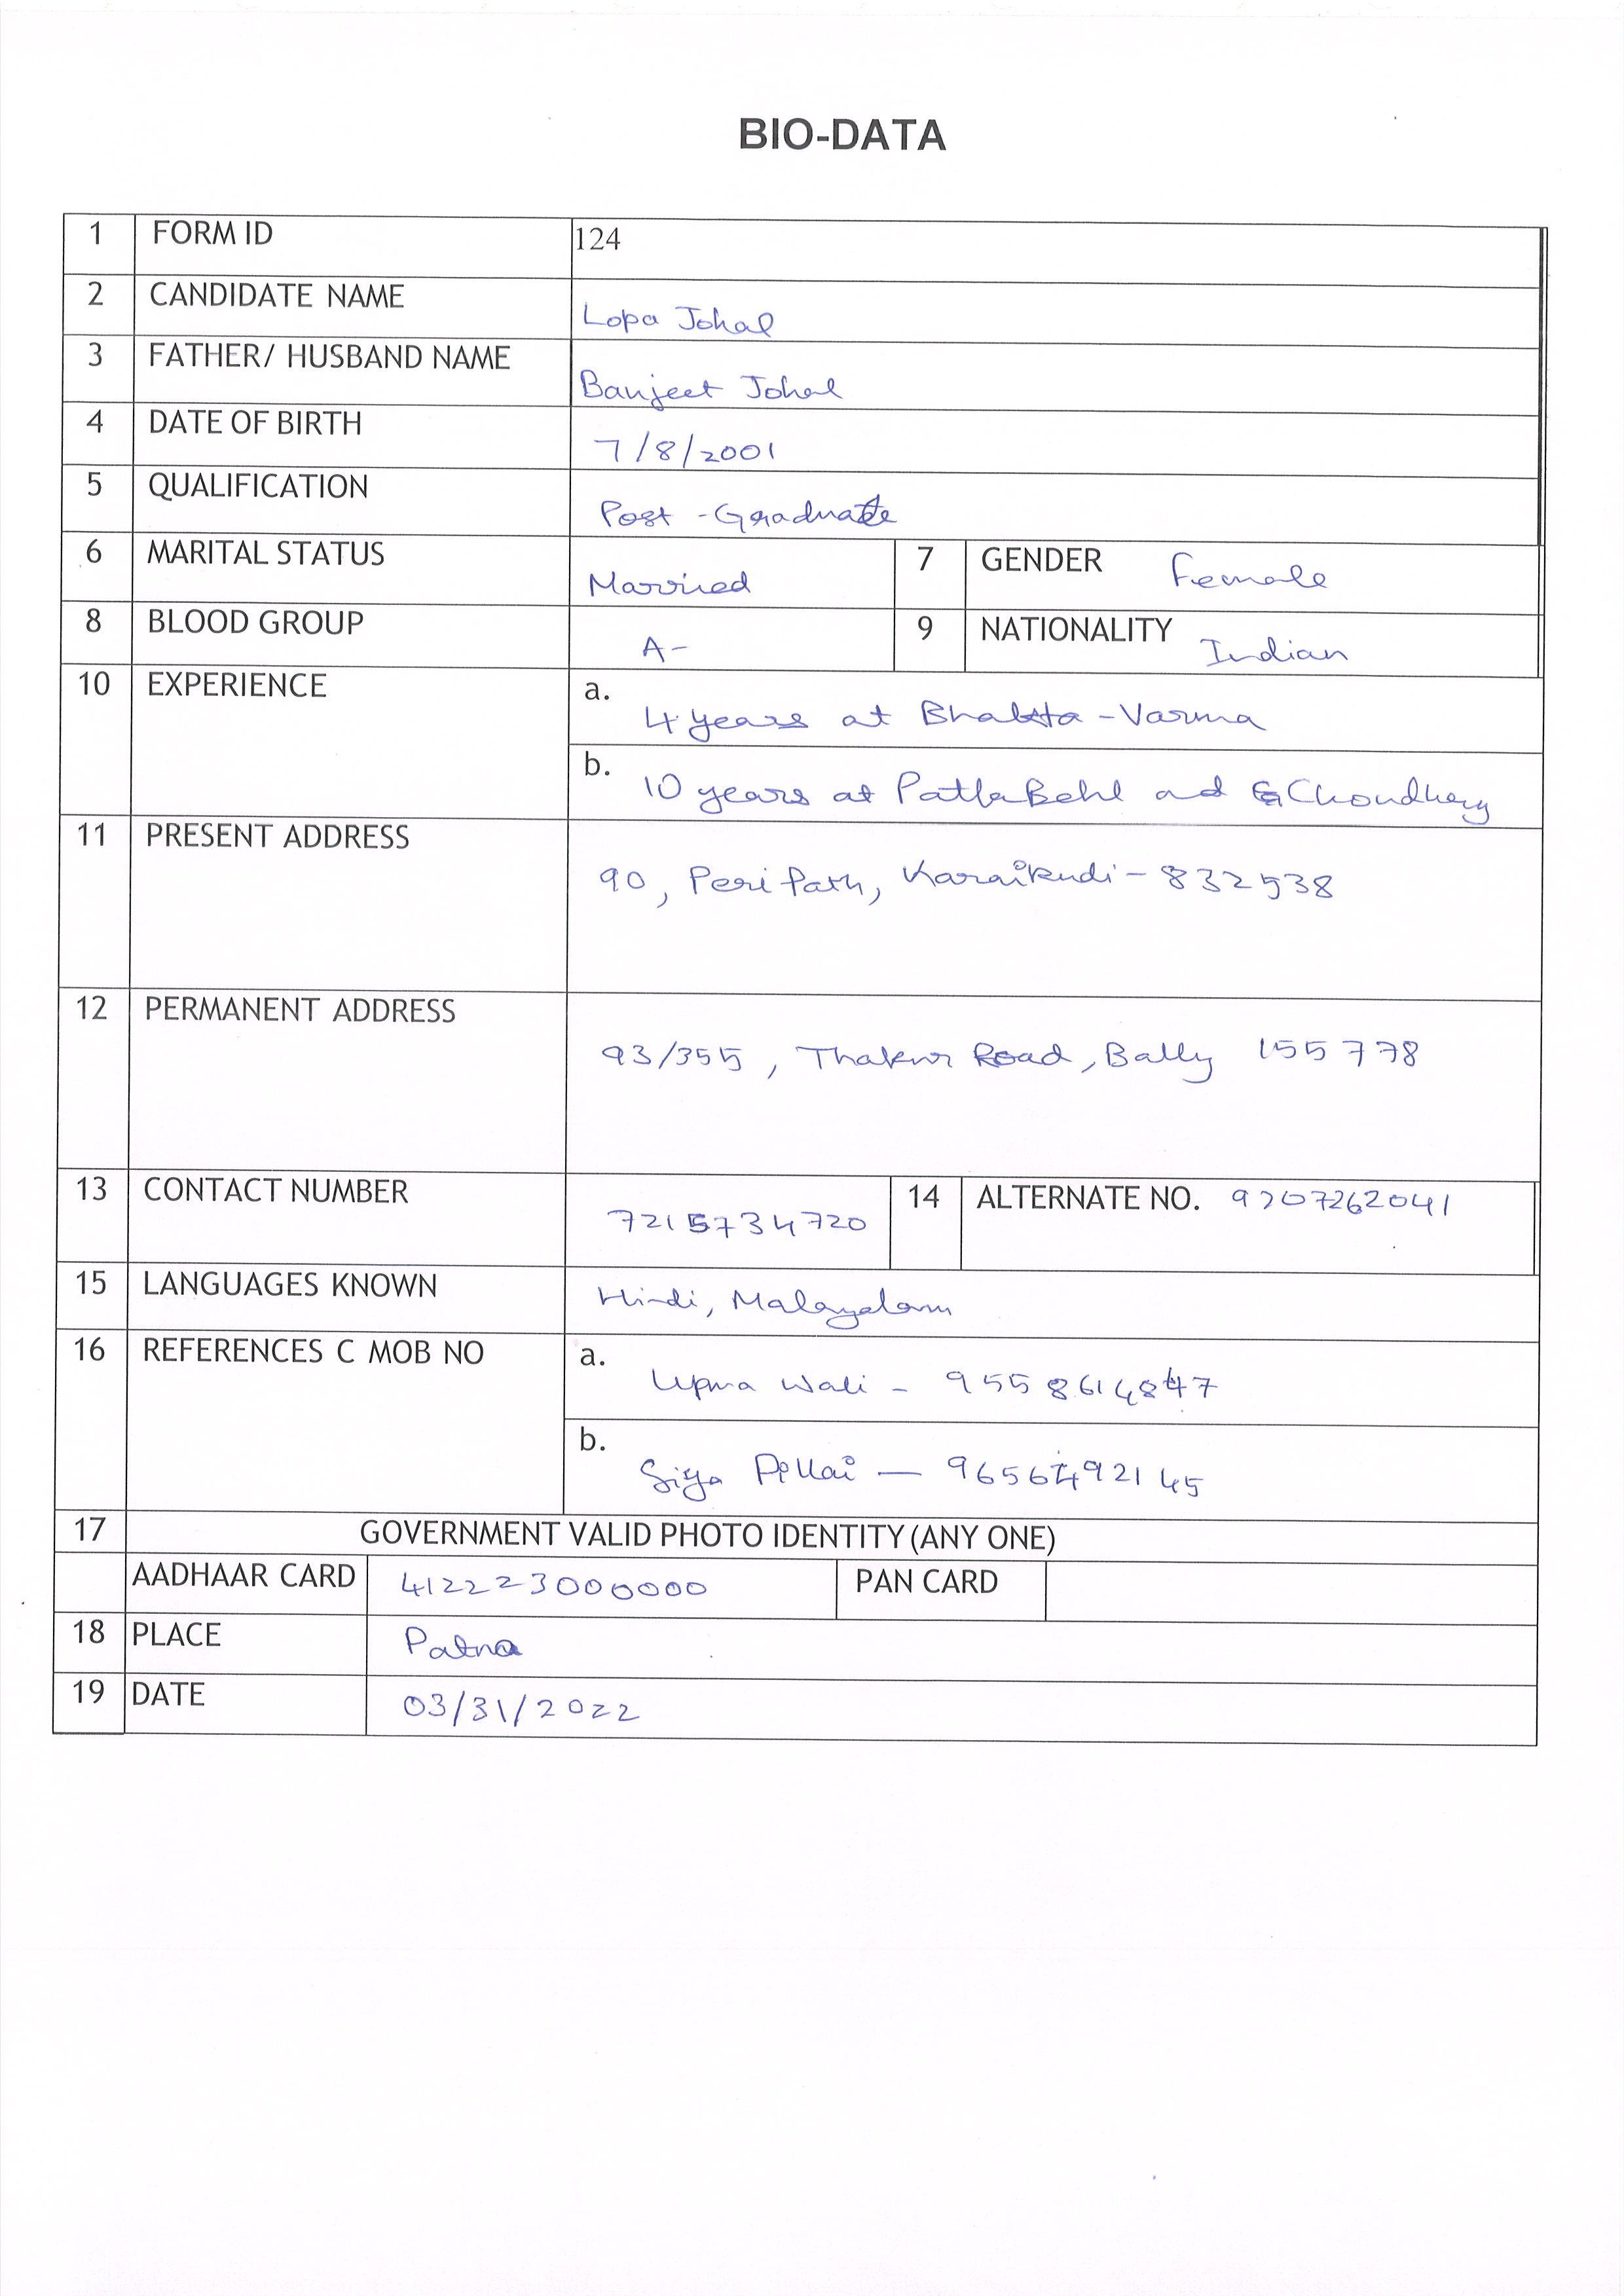 BIO-DATA
1 FORM ID 124
2 CANDIDATE NAME Lopa Johal
3 FATHER/ HUSBAND NAME Banjeet Johal
4 DATE OF BIRTH 7/8/2001
5 QUALIFICATION Post-Graduate
6 MARITAL STATUS Married 7 GENDER Female
8 BLOOD GROUP A- 9 NATIONALITY Indian
10 EXPERIENCE a. 4 years at Bhakta-Varma
b. 10 years at Patla Behl and Choudhery
11 PRESENT ADDRESS 90, Peri Path, Karaikudi-832538
12 PERMANENT ADDRESS 93/355, Thakur Road, Bally 155778
13 CONTACT NUMBER 7215734720 14 ALTERNATE NO. 9207262041
15 LANGUAGES KNOWN Hindi, Malayalam
16 REFERENCES C MOB NO a. Upma Wali - 9558614847
b. Siya Pillai - 9656492145
17 GOVERNMENT VALID PHOTO IDENTITY (ANY ONE)
AADHAAR CARD 412223000000 PAN CARD
18 PLACE Patna
19 DATE 03/31/2022